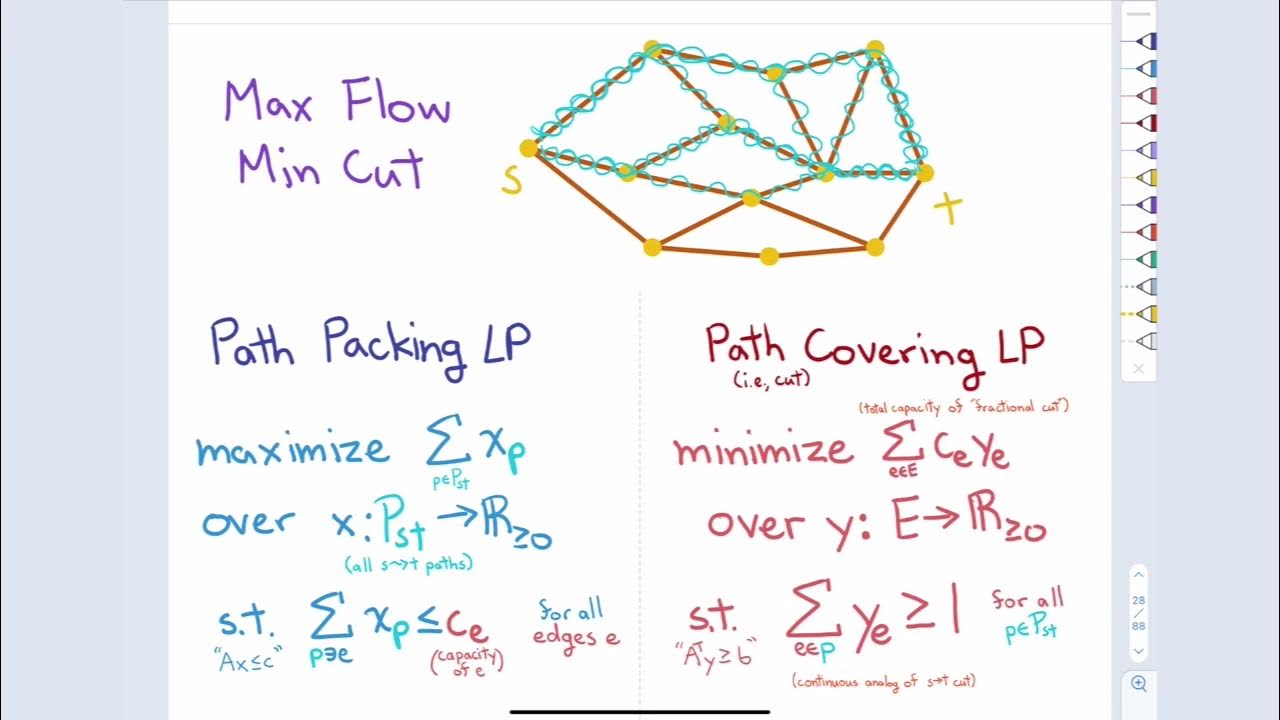 Max Flow
Min Cut
s
t
Path Packing LP
maximize ∑ x_p
p∈P_st
over x: P_st → ℝ_≥0
(all s⤳t paths)
s.t. ∑ x_p ≤ c_e for all edges e
p∋e
"Ax≤c"
(capacity of e)
Path Covering LP
(i.e., cut)
(total capacity of "fractional cut")
minimize ∑ c_e y_e
e∈E
over y: E → ℝ_≥0
s.t. ∑ y_e ≥ 1 for all p∈P_st
e∈p
"Aᵀy≥b"
(continuous analog of s→t cut)
28
/
88